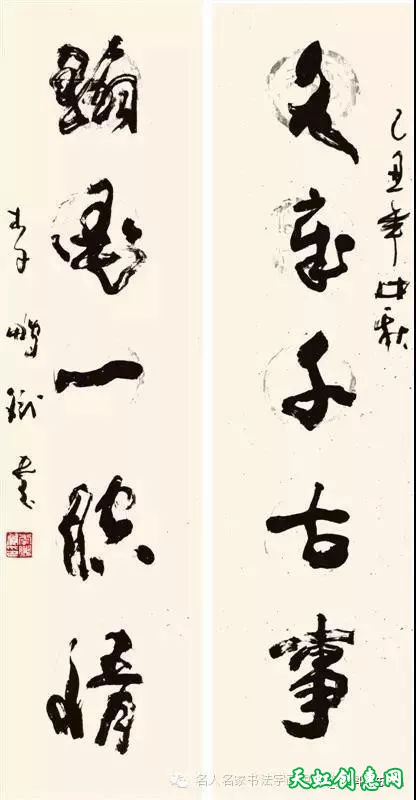 己丑年中秋
文章千古事
翰墨一腔情
李鹏
名人名家书法字画
天虹创意网